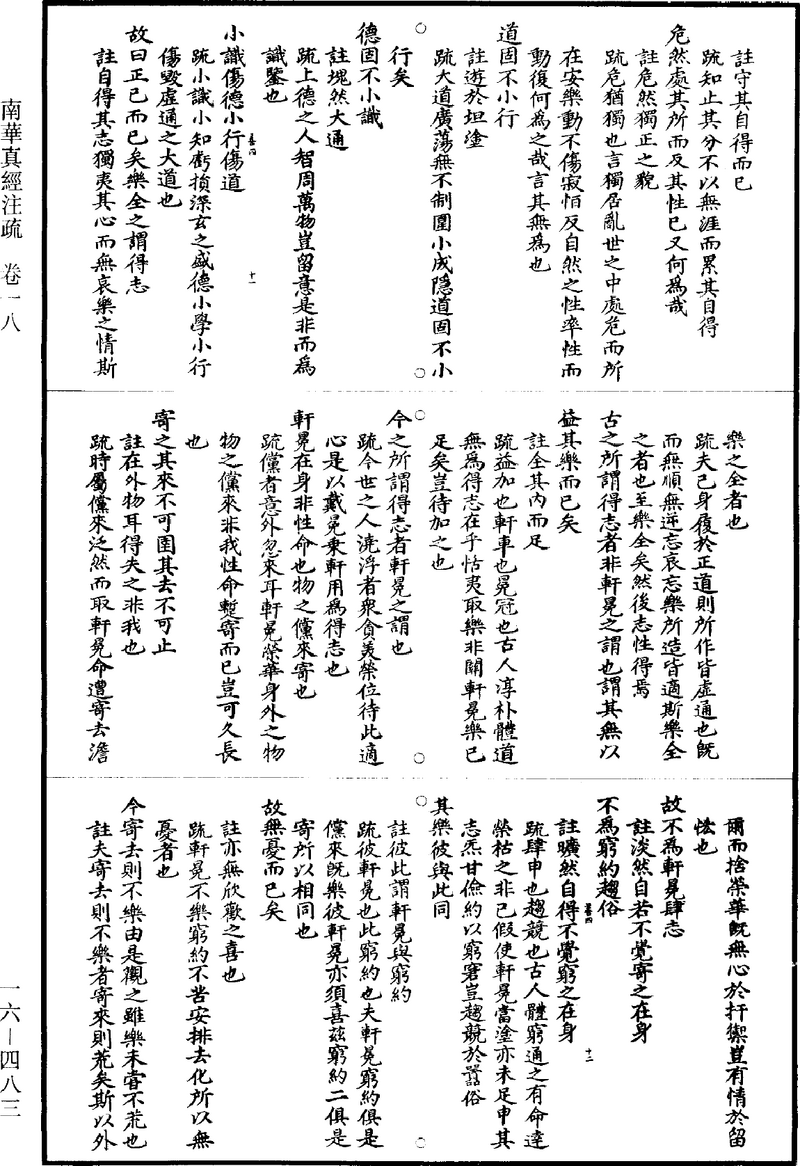 註守其自得而已
疏知止其分不以無涯而累其自得
危然處其所而反其性已又何為哉
註危然獨正之貌
疏危猶獨也言獨居亂世之中處危而所
在安樂動不傷寂恒反自然之性率性而
動復何為之哉言其無為也
道固不小行
註遊於坦塗
疏大道廣蕩無不制圍小成隱道固不小
行矣
德固不小識
註塊然大通
疏上德之人智周萬物豈留意是非而為
識鑒也
小識傷德小行傷道
疏小識小知虧損深玄之盛德小學小行
傷毀虛通之大道也
故曰正己而已矣樂全之謂得志
註自得其志獨夷其心而無哀樂之情斯
樂之全者也
疏夫己身履於正道則所作皆虛通也既
而無順無逆忘哀忘樂所造皆適斯樂全
之者也至樂全矣然後志性得焉
古之所謂得志者非軒冕之謂也謂其無以
益其樂而已矣
註全其內而足
疏益加也軒車也冕冠也古人淳朴體道
無為得志在乎恬夷取樂非關軒冕樂已
足矣豈待加之也
今之所謂得志者軒冕之謂也
疏今世之人澆浮者衆貪美榮位待此適
心是以戴冕乘軒用為得志也
軒冕在身非性命也物之儻來寄也
疏儻者意外忽來耳軒冕榮華身外之物
物之儻來非我性命蹔寄而已豈可久長
也
寄之其來不可圉其去不可止
註在外物耳得失之非我也
疏時屬儻來泛然而取軒冕命遭寄去澹
爾而捨榮華既無心於扞禦豈有情於留
恡也
故不為軒冕肆志
註淡然自若不覺寄之在身
不為窮約趨俗
註曠然自得不覺窮之在身
疏肆申也趨競也古人體窮通之有命達
榮枯之非己假使軒冕當塗亦未足申其
志炁甘儉約以窮窘豈趨競於囂俗
其樂彼與此同
註彼此謂軒冕與窮約
疏彼軒冕也此窮約也夫軒冕窮約俱是
儻來既樂彼軒冕亦須喜茲窮約二俱是
寄所以相同也
故無憂而已矣
註亦無欣歡之喜也
疏軒冕不樂窮約不苦安排去化所以無
憂者也
今寄去則不樂由是觀之雖樂未甞不荒也
註夫寄去則不樂者寄來則荒矣斯以外
南華真經注疏　卷一八
一六－四八三